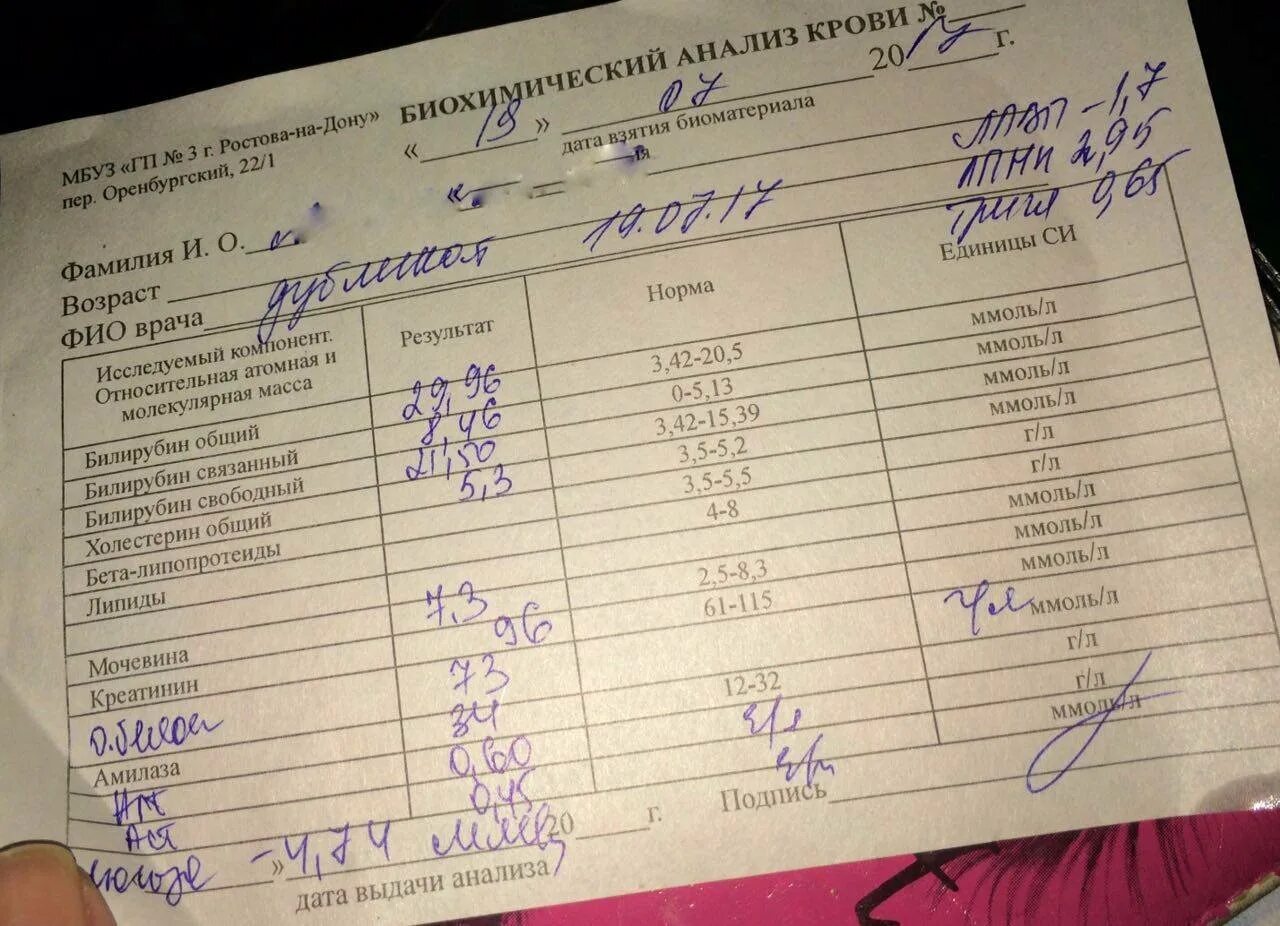 БИОХИМИЧЕСКИЙ АНАЛИЗ КРОВИ №
МБУЗ «ГП № 3 г. Ростова-на-Дону»
пер. Оренбургский, 22/1
« 19 » 07 2017 г.
дата взятия биоматериала
ЛПВП - 1,7
ЛПНП 2,95
Тригл 0,65
Фамилия И. О.
Возраст
ФИО врача
дубликат 19.07.17
Исследуемый компонент. Результат Норма Единицы СИ
Относительная атомная и
молекулярная масса
Билирубин общий 29,96 3,42-20,5 ммоль/л
Билирубин связанный 8,46 0-5,13 ммоль/л
Билирубин свободный 21,50 3,42-15,39 ммоль/л
Холестерин общий 5,3 3,5-5,2 ммоль/л
Бета-липопротеиды 3,5-5,5 г/л
Липиды 4-8 г/л
ммоль/л
Мочевина 7,3 2,5-8,3 ммоль/л
Креатинин 96 61-115 ммоль/л
О. белок 73 ммоль/л
Амилаза 34 12-32 г/л
Алт 0,60 г/л
Аст 0,45 ммоль/л
» - 4,74 20 г.
дата выдачи анализа
Подпись